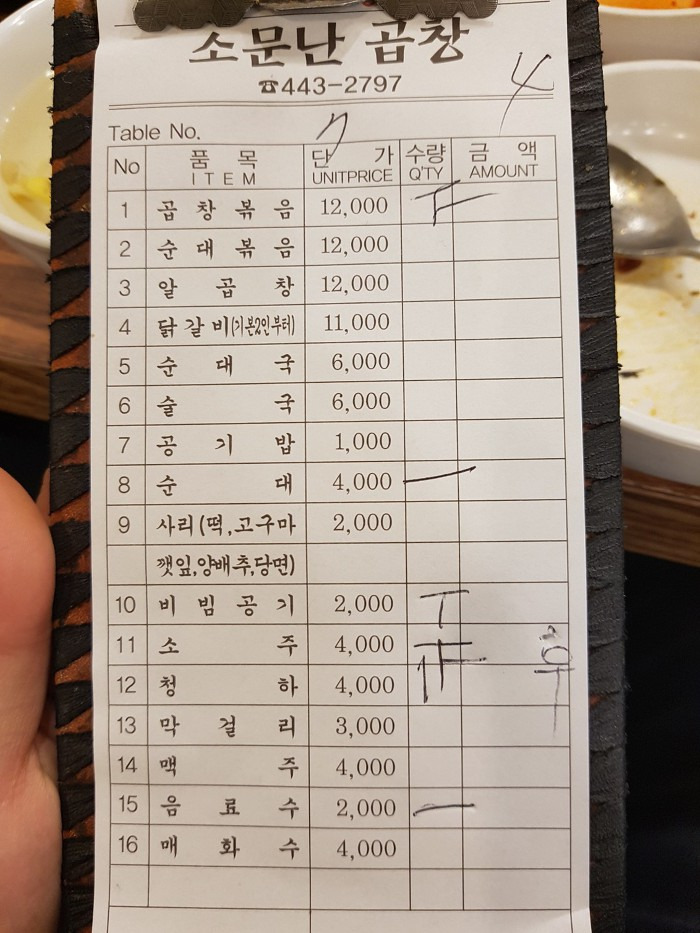 소문난 곱창
☎443-2797
4
Table No. 7
No 품목 ITEM 단가 UNITPRICE 수량 Q'TY 금액 AMOUNT
1 곱창볶음 12,000 下
2 순대볶음 12,000
3 알곱창 12,000
4 닭갈비(기본2인부터) 11,000
5 순대국 6,000
6 술국 6,000
7 공기밥 1,000
8 순대 4,000 一
9 사리(떡,고구마 2,000
깻잎,양배추,당면)
10 비빔공기 2,000 丅
11 소주 4,000
12 청하 4,000
13 막걸리 3,000
14 맥주 4,000
15 음료수 2,000 一
16 매화수 4,000